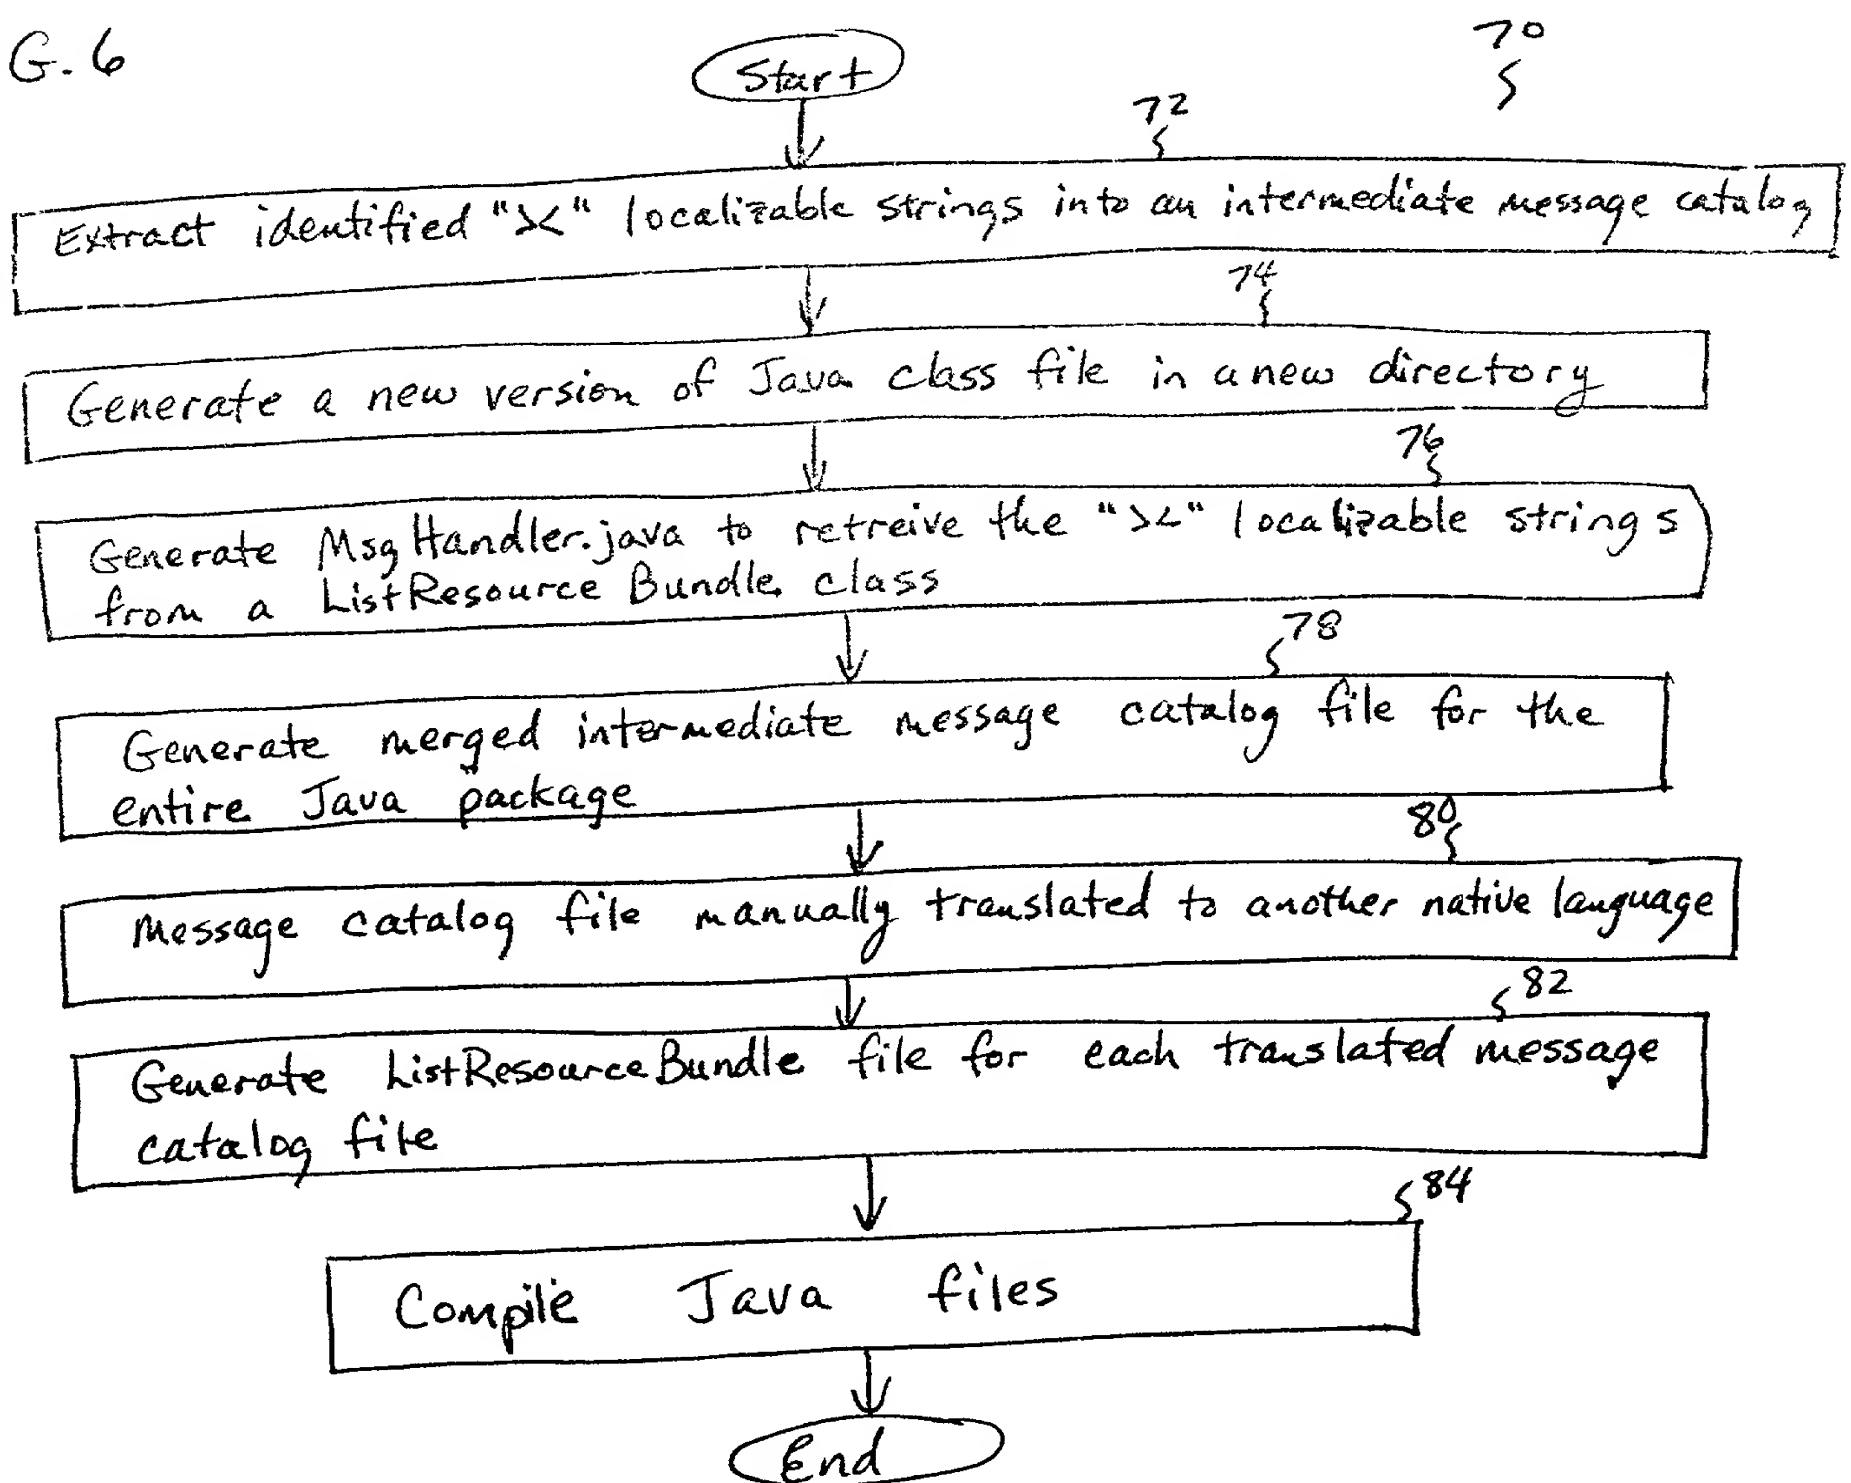 G. 6
70
Start
72
Extract identified "><" localizable strings into an intermediate message catalog
74
Generate a new version of Java class file in a new directory
76
Generate MsgHandler.java to retreive the "><" localizable strings
from a ListResourceBundle class
78
Generate merged intermediate message catalog file for the
entire Java package
80
Message catalog file manually translated to another native language
82
Generate ListResourceBundle file for each translated message
catalog file
84
Compile Java files
End